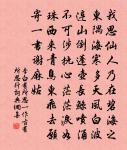 我思仙人乃在碧海之
東隅海寒多天風白波
連山倒蓬壺長鯨噴湧
不可涉撫心茫茫淚如
珠西來青鳥東飛去願
寄一書謝麻姑
李白有所思一作古有
所思行